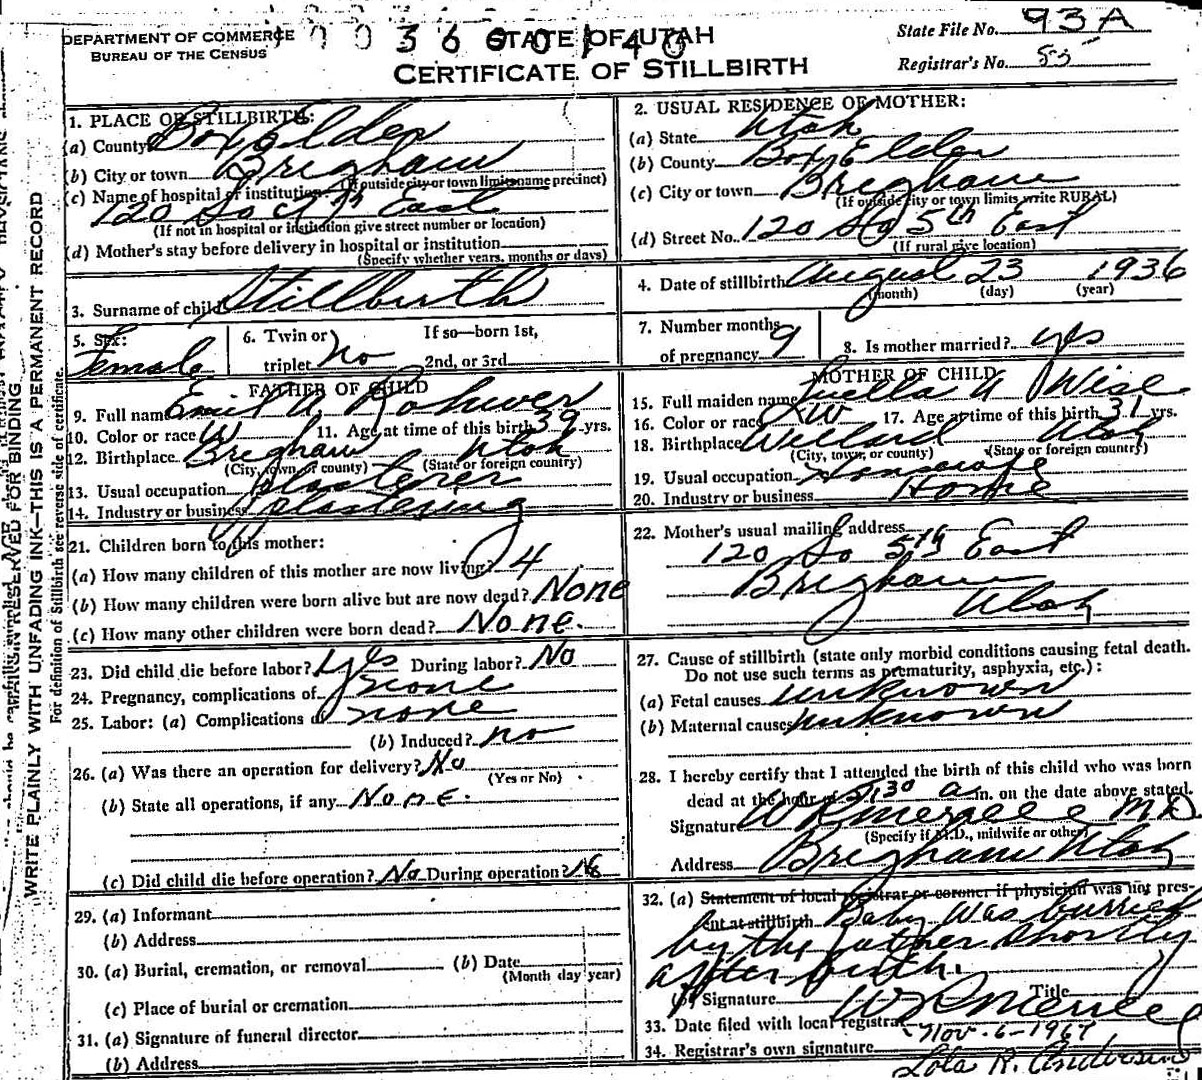 DEPARTMENT OF COMMERCE
BUREAU OF THE CENSUS
0 0 3 6 0 0 1 4 0
STATE OF UTAH
CERTIFICATE OF STILLBIRTH
State File No. 93A
Registrar's No. 55
WRITE PLAINLY WITH UNFADING INK—THIS IS A PERMANENT RECORD
MARGIN RESERVED FOR BINDING
For definition of Stillbirth see reverse side of certificate.
1. PLACE OF STILLBIRTH:
(a) County Box Elder
(b) City or town Brigham
(If outside city or town limits name precinct)
(c) Name of hospital or institution
120 So 5th East
(If not in hospital or institution give street number or location)
(d) Mother's stay before delivery in hospital or institution
(Specify whether years, months or days)
2. USUAL RESIDENCE OF MOTHER:
(a) State Utah
(b) County Box Elder
(c) City or town Brigham
(If outside city or town limits write RURAL)
(d) Street No. 120 So 5th East
(If rural give location)
3. Surname of child Stillbirth
4. Date of stillbirth August 23 1936
(month) (day) (year)
5. Sex: Female
6. Twin or triplet No
If so—born 1st, 2nd, or 3rd
7. Number months of pregnancy 9
8. Is mother married? yes
FATHER OF CHILD
9. Full name Emil A. Rohwer
10. Color or race W
11. Age at time of this birth 39 yrs.
12. Birthplace Brigham Utah
(City, town, or county) (State or foreign country)
13. Usual occupation plasterer
14. Industry or business plastering
MOTHER OF CHILD
15. Full maiden name Luella A Wise
16. Color or race W
17. Age at time of this birth 31 yrs.
18. Birthplace Willard Utah
(City, town, or county) (State or foreign country)
19. Usual occupation Housewife
20. Industry or business Home
21. Children born to this mother:
(a) How many children of this mother are now living? 4
(b) How many children were born alive but are now dead? None
(c) How many other children were born dead? None.
22. Mother's usual mailing address
120 So 5th East
Brigham
Utah
23. Did child die before labor? Yes During labor? No
24. Pregnancy, complications of none
25. Labor: (a) Complications of none
(b) Induced? no
26. (a) Was there an operation for delivery? No
(Yes or No)
(b) State all operations, if any None.
(c) Did child die before operation? No During operation? No
27. Cause of stillbirth (state only morbid conditions causing fetal death.
Do not use such terms as prematurity, asphyxia, etc.):
(a) Fetal causes unknown
(b) Maternal causes unknown
28. I hereby certify that I attended the birth of this child who was born
dead at the hour of 5:30 a m. on the date above stated.
Signature W R Merrell M D
(Specify if M.D., midwife or other)
Address Brigham Utah
29. (a) Informant
(b) Address
30. (a) Burial, cremation, or removal (b) Date
(Month day year)
(c) Place of burial or cremation
31. (a) Signature of funeral director
(b) Address
32. (a) Statement of local registrar or coroner if physician was not pres-
ent at stillbirth Baby was burried
by the father shortly
after birth.
(b) Signature W R Merrell Title
33. Date filed with local registrar Nov. 6-1967
34. Registrar's own signature Lola R. Anderson